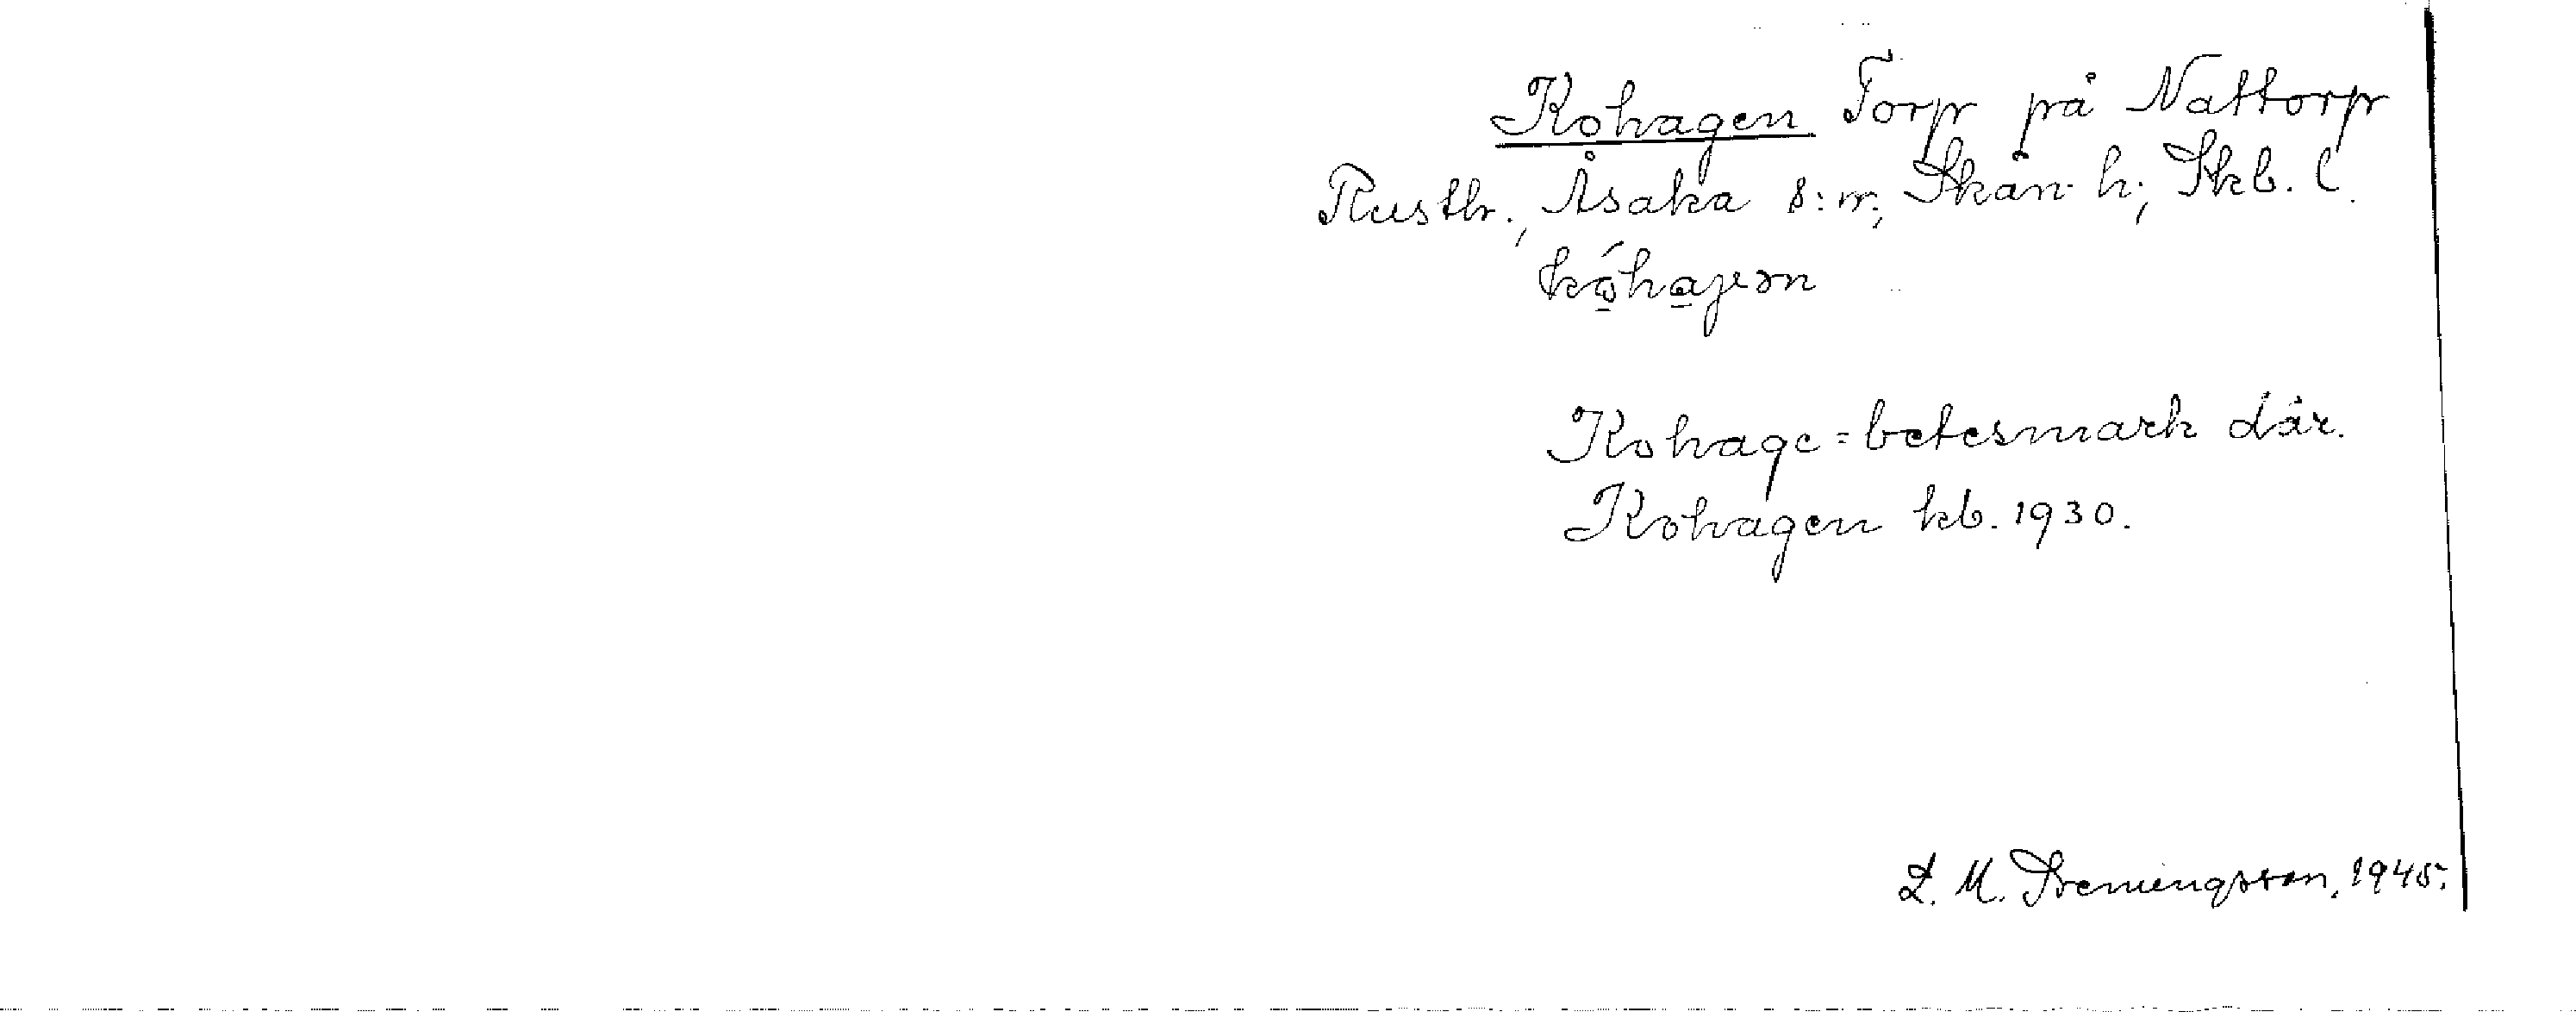 Kohagen Torp på Nattorp
Rusth., Åsaka s:n, Skån. h., Skb. l.
kóhagən
Kohage = betesmark där.
Kohagen kb. 1930.
L. M. Svenungsson, 1945.